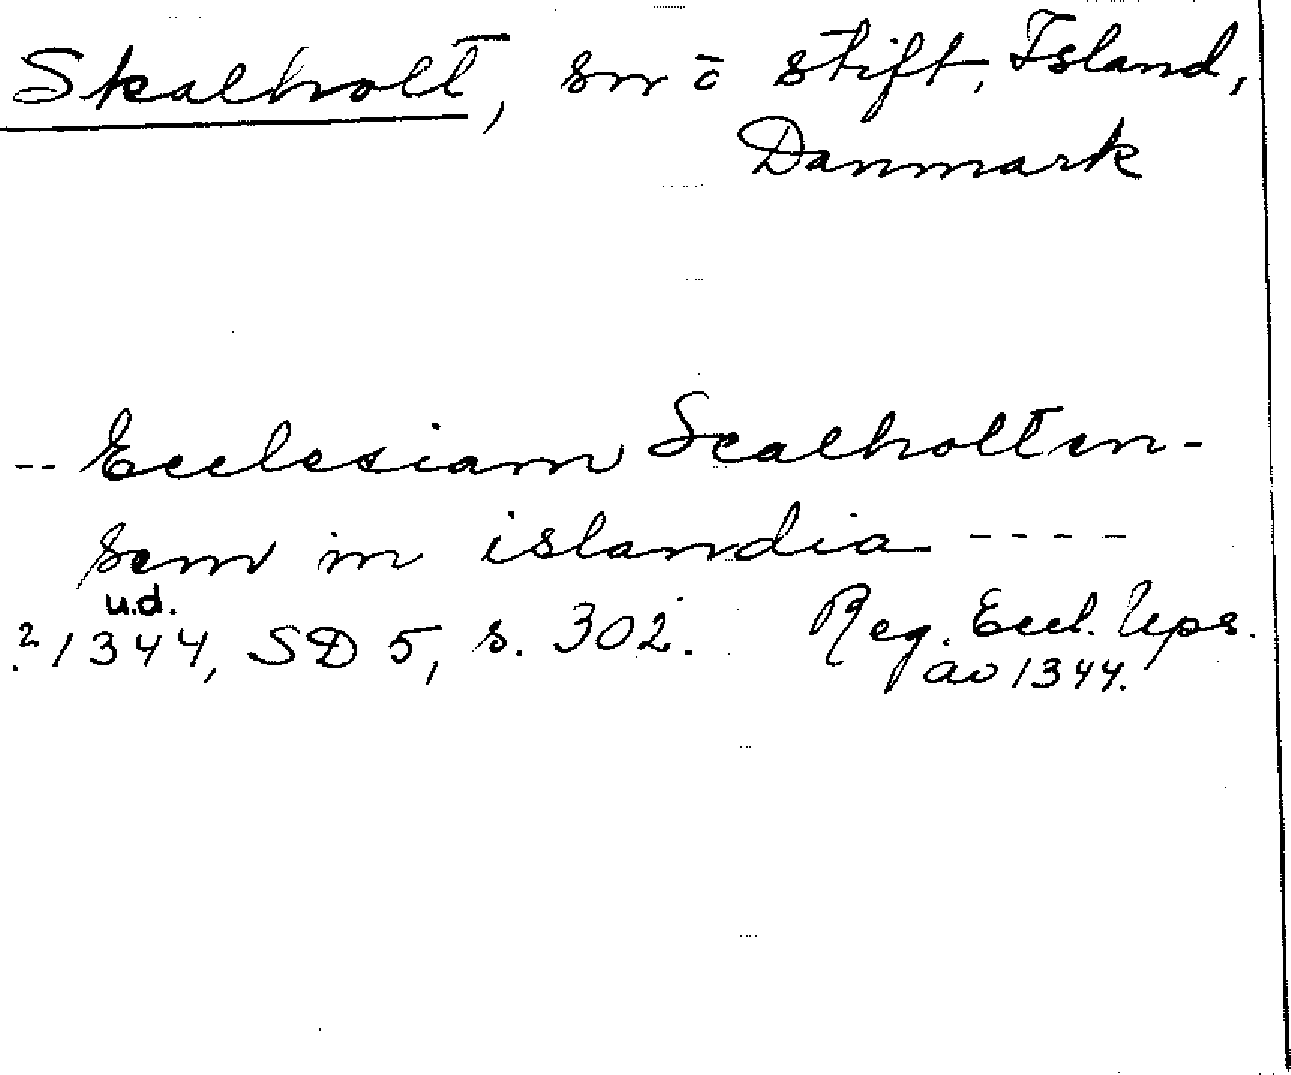 Skalholt, sn o stift, Island,
Danmark
-- Ecclesiam Scalholten-
sem in islandia ----
u.d.
?1344, SD 5, s. 302. Reg. Eccl. Ups.
av 1344.